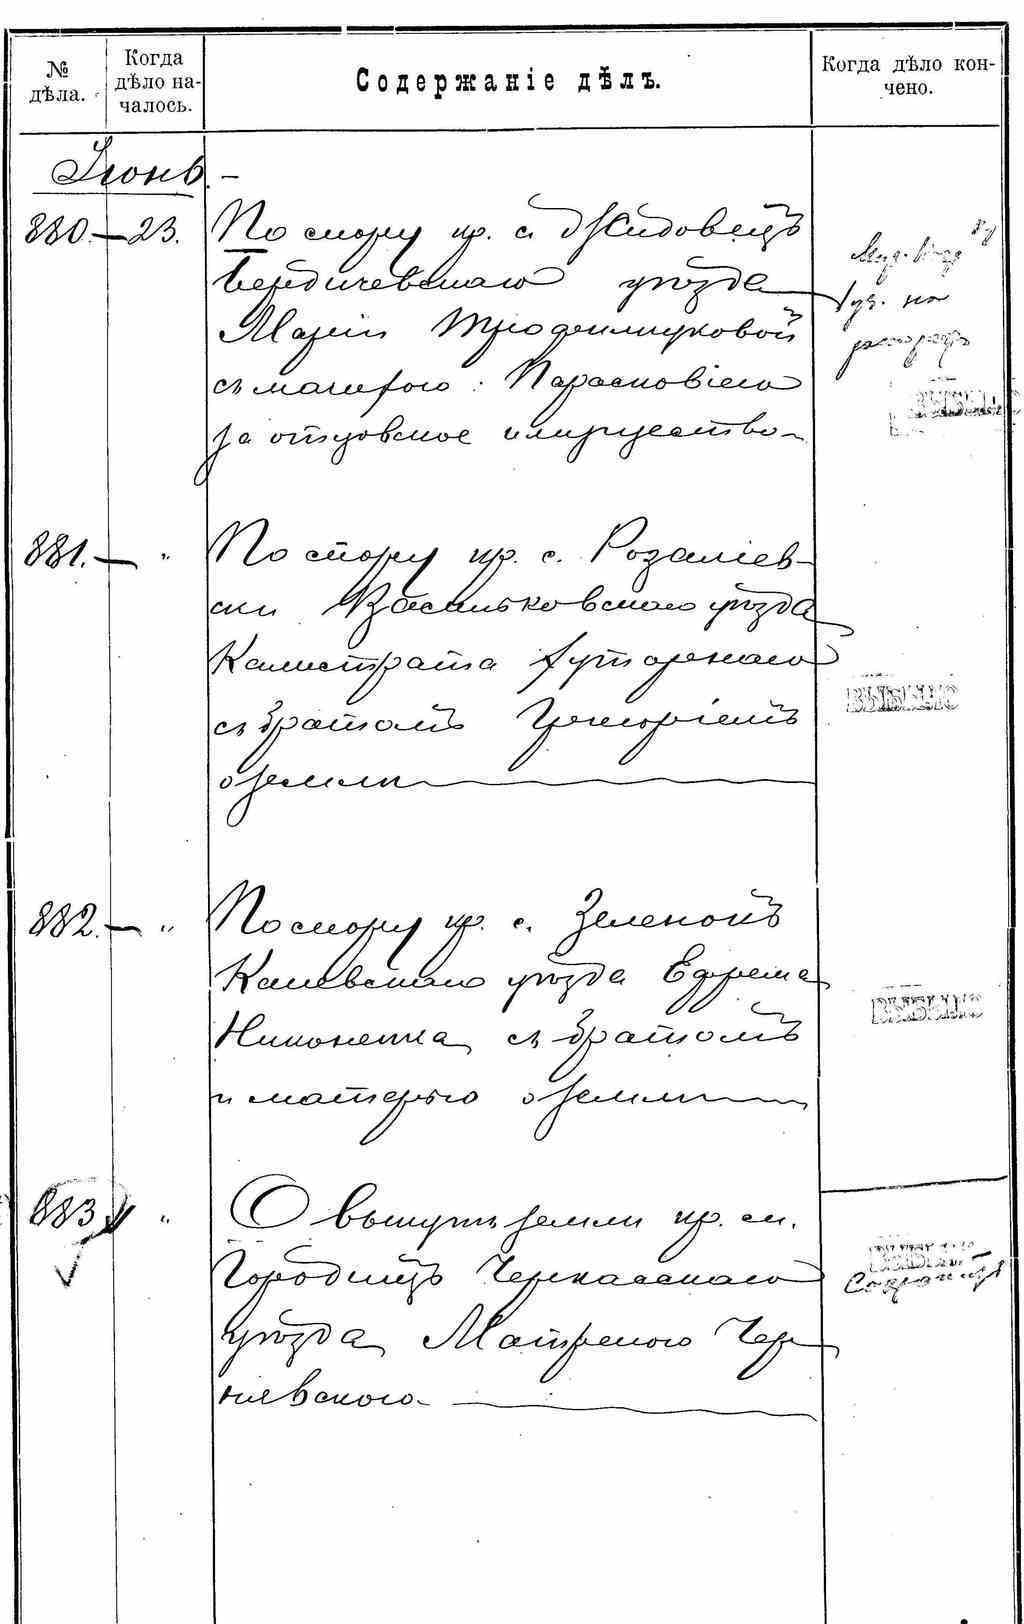 № дѣла.
Когда дѣло на-
чалось.
Содержаніе дѣлъ.
Когда дѣло кон-
чено.
Іюнь. –
880. – 23. По спору кр. с. Жидовецъ
Бердичевскаго уѣзда
Маріи
съ матерью Парасковіею
за отцовское имущество
881. – " По спору кр. с. Розаліев-
ски Васильковскаго уѣзда
Калистрата Хуторнаго
съ братомъ Григоріемъ
о землѣ
ВЫБЫЛО
882. – " По спору кр. с. Зеленокъ
Каневскаго уѣзда Ефрема
Никоненка съ братомъ
и матерью о землѣ
883 " О выкупѣ земли кр. м.
Городищъ Черкасскаго
уѣзда Матреною Чер-
нявскою